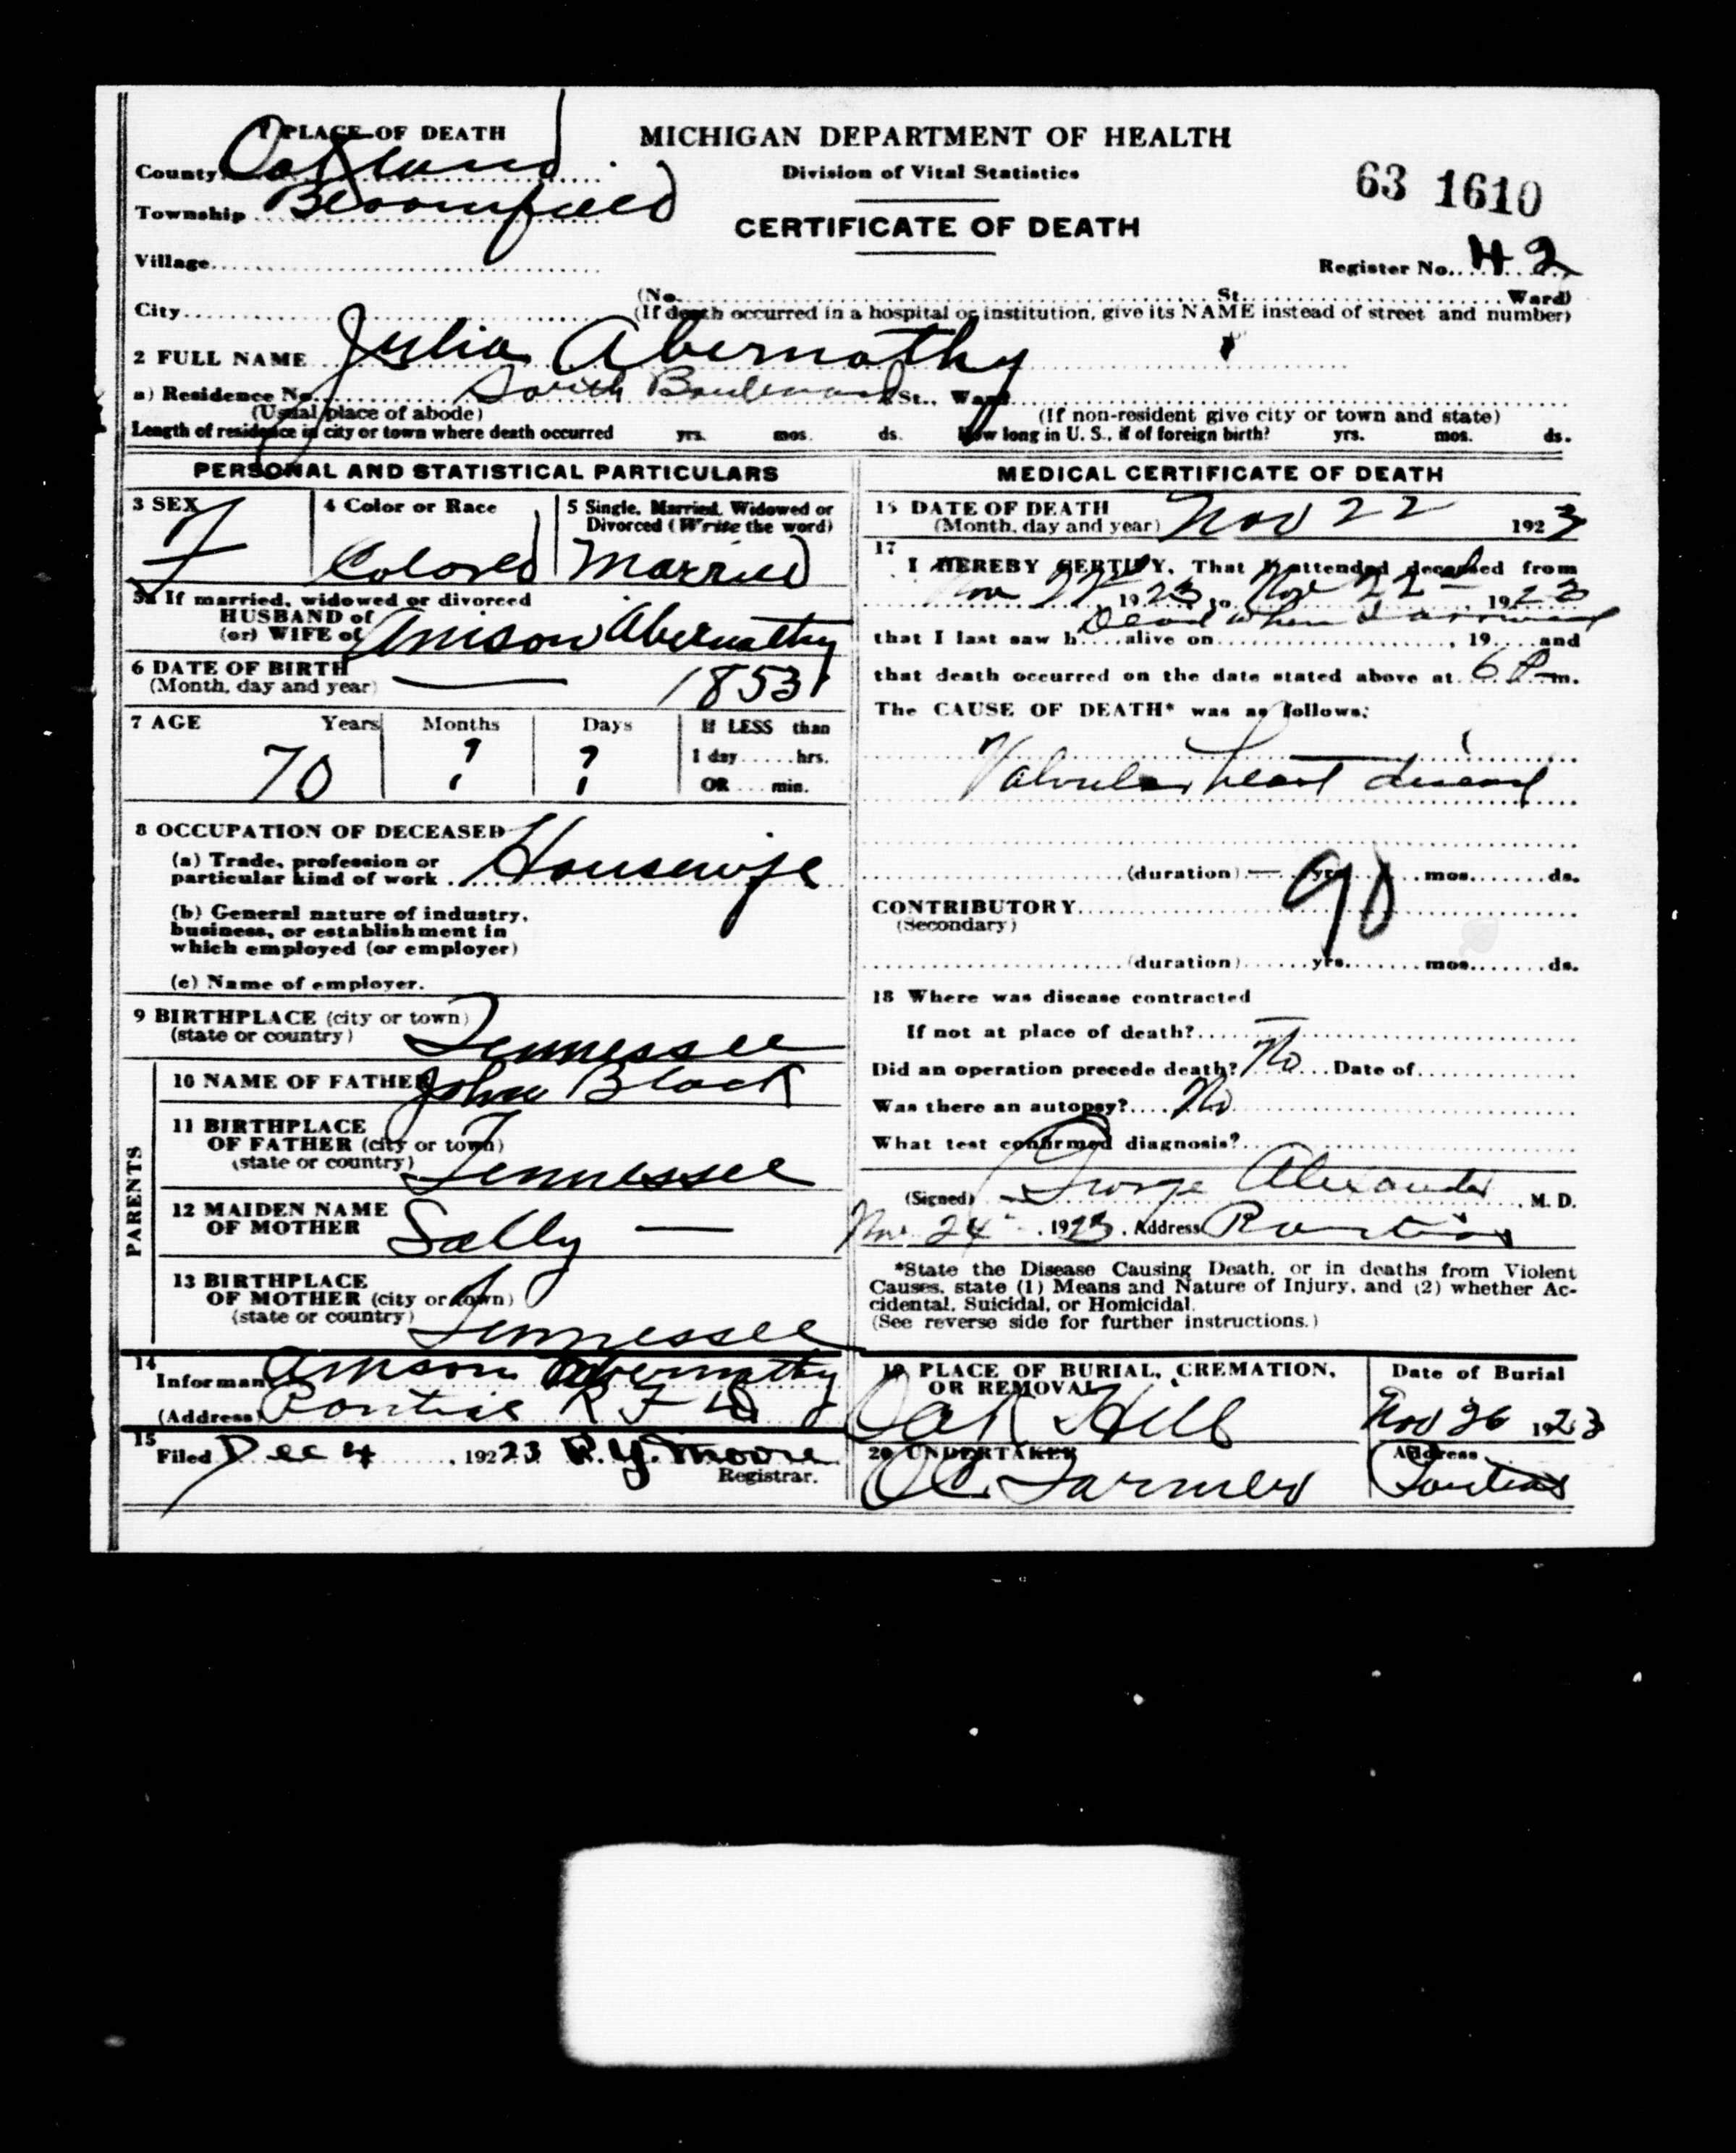 1 PLACE OF DEATH
County Oakland
Township Bloomfield
Village
City
MICHIGAN DEPARTMENT OF HEALTH
Division of Vital Statistics
CERTIFICATE OF DEATH
63 1610
Register No. 42
(No. St. Ward)
(If death occurred in a hospital or institution, give its NAME instead of street and number)
2 FULL NAME Julia Abernathy
a) Residence No. South Boulevard St., Ward
(Usual place of abode) (If non-resident give city or town and state)
Length of residence in city or town where death occurred yrs. mos. ds. How long in U. S., if of foreign birth? yrs. mos. ds.
PERSONAL AND STATISTICAL PARTICULARS
3 SEX 4 Color or Race 5 Single, Married, Widowed or
Divorced (Write the word)
F Colored Married
5a If married, widowed or divorced
HUSBAND of
(or) WIFE of Amison Abernathy
6 DATE OF BIRTH
(Month, day and year) — 1853
7 AGE Years Months Days If LESS than
1 day......hrs.
OR....min.
70 ? ?
8 OCCUPATION OF DECEASED
(a) Trade, profession or
particular kind of work Housewife
(b) General nature of industry,
business, or establishment in
which employed (or employer)
(c) Name of employer.
9 BIRTHPLACE (city or town)
(state or country) Tennessee
PARENTS
10 NAME OF FATHER John Black
11 BIRTHPLACE
OF FATHER (city or town)
(state or country) Tennessee
12 MAIDEN NAME
OF MOTHER Sally —
13 BIRTHPLACE
OF MOTHER (city or town)
(state or country) Tennessee
14
Informant Amison Abernathy
(Address) Pontiac R F D
15
Filed Dec 4, 19223 R. Y. Moore
Registrar.
MEDICAL CERTIFICATE OF DEATH
15 DATE OF DEATH
(Month, day and year) Nov 22 1923
17
I HEREBY CERTIFY, That I attended deceased from
Nov 22, 1923 to Nov 22, 1923
Dead when I arrived
that I last saw h....alive on, 19....and
that death occurred on the date stated above at 6 P m.
The CAUSE OF DEATH* was as follows:
Valvular heart disease
(duration) — yrs. mos. ds.
90
CONTRIBUTORY
(Secondary)
(duration) yrs. mos. ds.
18 Where was disease contracted
If not at place of death? —
Did an operation precede death? No Date of
Was there an autopsy? No
What test confirmed diagnosis?
(Signed) George Alexander, M. D.
Nov 24, 1923. Address Pontiac
*State the Disease Causing Death, or in deaths from Violent
Causes, state (1) Means and Nature of Injury, and (2) whether Ac-
cidental, Suicidal, or Homicidal.
(See reverse side for further instructions.)
19 PLACE OF BURIAL, CREMATION,
OR REMOVAL
Oak Hill
Date of Burial
Nov 26 1923
20 UNDERTAKER
O C Farmer
Address
Pontiac